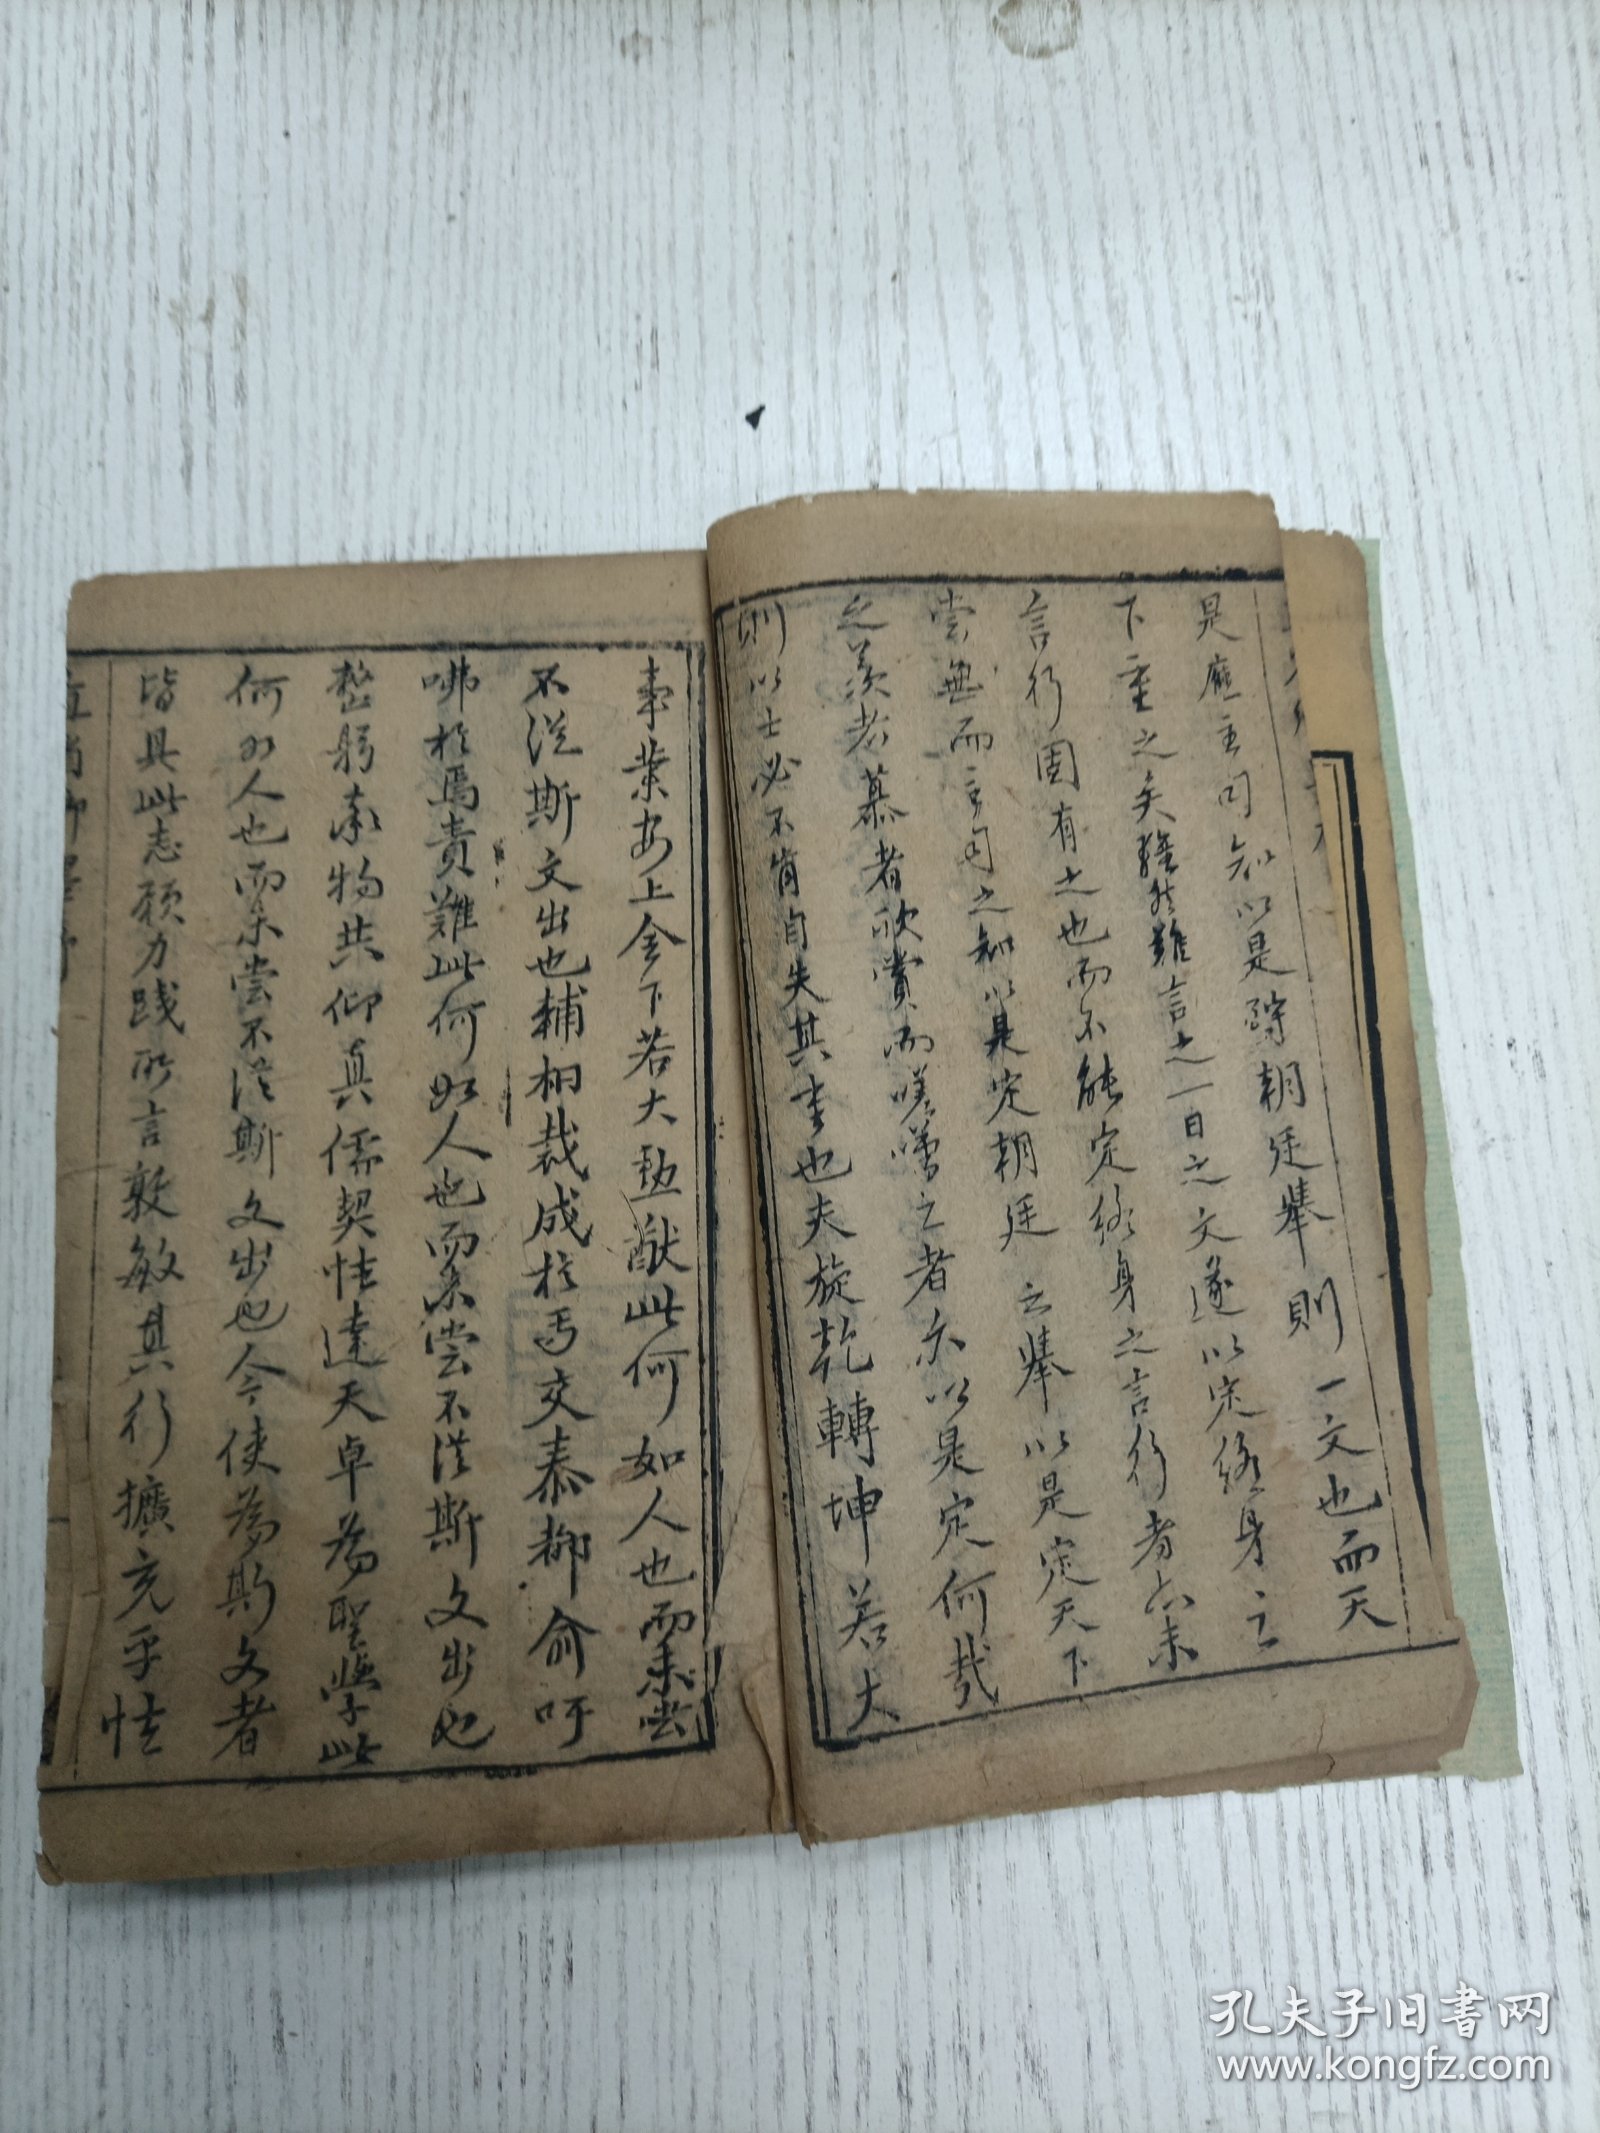 是應主司知以是將朝廷舉則一文也而天
下重之矣雖然難言之一日之文遂以定終身之
言行固有之也而不能定終身之言行者亦未
嘗無而主司之知以是定朝廷之舉以是定天下
之羨者慕者欣賞而嗟嘆之者亦以是定何哉
則以士必不肯自失其素也夫旋乾轉坤若大
事業安上全下若大勳猷此何如人也而未嘗
不從斯文出也輔相裁成於丐交泰都俞吁
咈於焉責難此何如人也而未嘗不從斯文出也
整躬率物共仰真儒契性達天卓為聖學此
何如人也而未嘗不從斯文出也今使為斯文者
皆具此志願力踐所言敦敏其行擴充乎性
孔夫子旧书网
www.kongfz.com